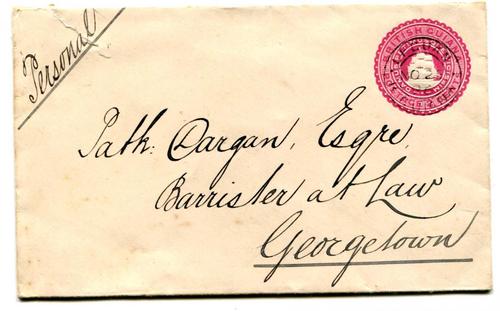 Personal
BRITISH GUIANA
Path: Dargan, Esqre,
Barrister at Law
Georgetown